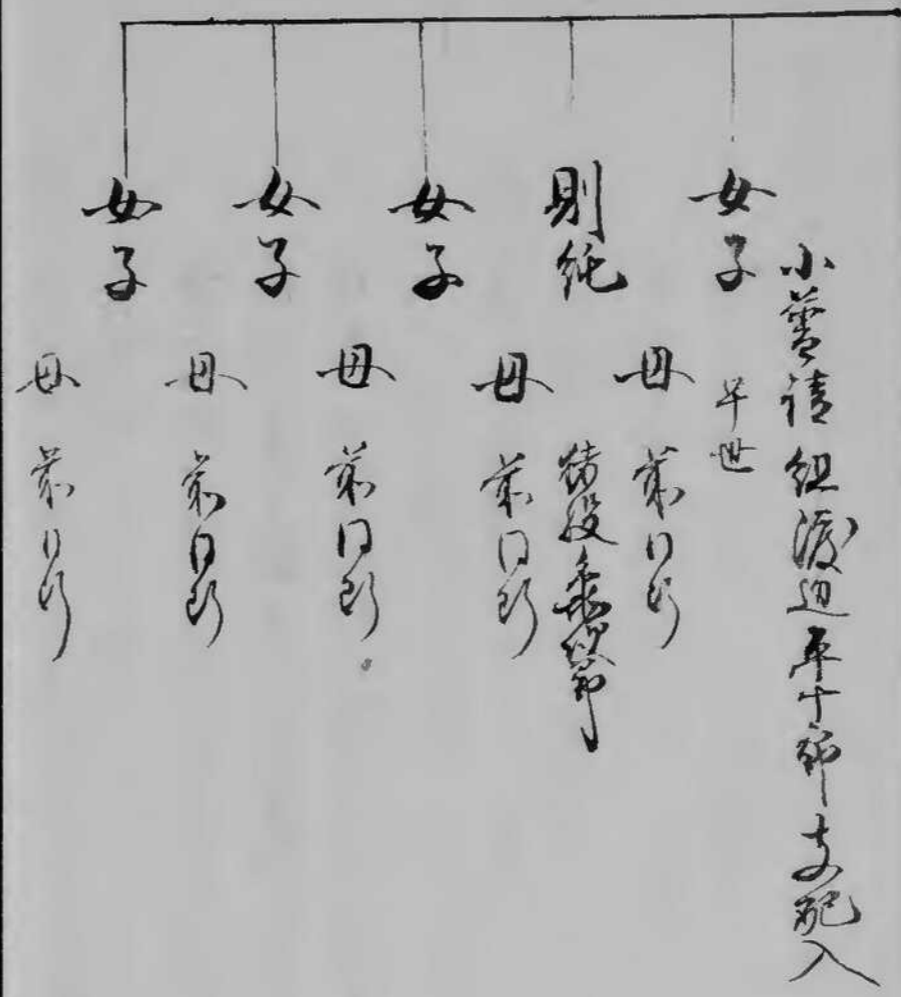 小普請組渡辺平十郎支配入
女子
早世
母 前同断
則純
母 前同断
女子
母 前同断
女子
母 前同断
女子
母 前同断